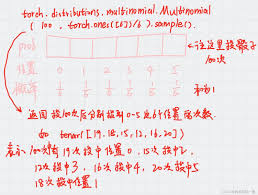 torch.distributions.multinomial.Multinomial
(100, torch.ones([6])/6).sample().
prob
→注这里投骰子
100次
位置 0 1 2 3 4 5
概率 1/6 1/6 1/6 1/6 1/6 1/6 和为1
返回投100次后分别投到0-5这些位置的次数
如 tensor([19.18,15,12,16,20])
表示100次中有19次投中位置0,15次投中2,
12次投中3,16次投中4,20次投中5
18次投中位置1